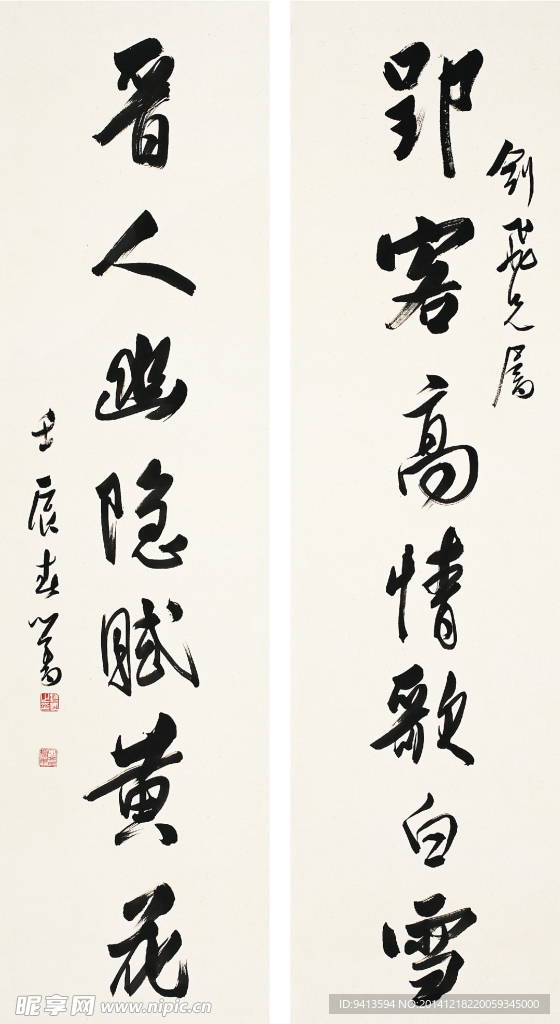 剑飞兄属
郢客高情歌白雪
晋人幽隐赋黄花
壬辰春 心畬
昵享网 www.nipic.cn
ID:9413594 NO:20141218220059345000